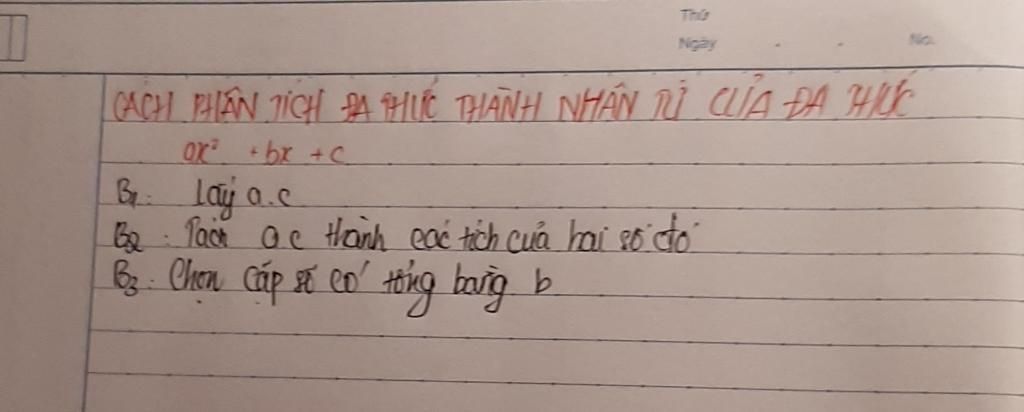 Thứ
Ngày . . No.
CÁCH PHÂN TÍCH ĐA THỨC THÀNH NHÂN TỬ CỦA ĐA THỨC
ax² + bx + c
B1: Lấy a.c
B2: Tách a c thành các tích của hai số đó
B3: Chọn cặp số có tổng bằng b